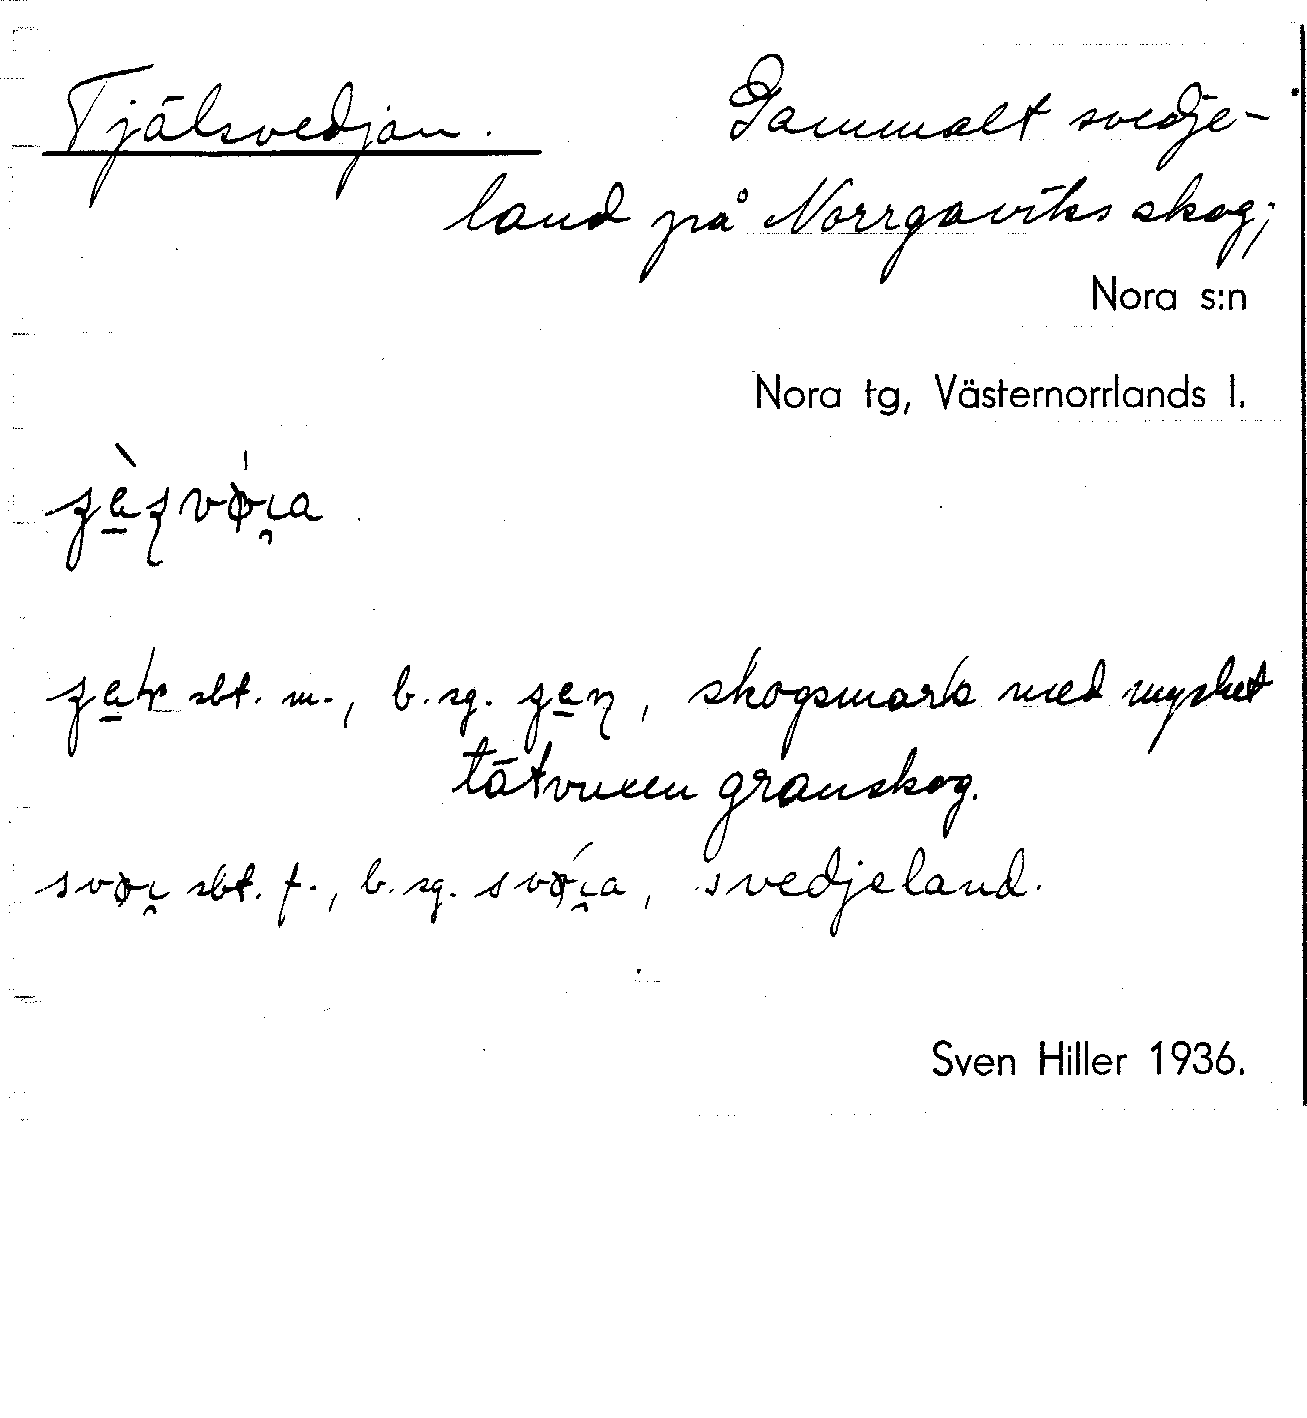 Tjälsvedjan. Gammalt svedje-
land på Norrgaviks skog;
Nora s:n
Nora tg, Västernorrlands l.
sbt. m., b. sg. , skogsmark med mycket
tätvuxen granskog.
sbt. f., b. sg. , svedjeland.
Sven Hiller 1936.